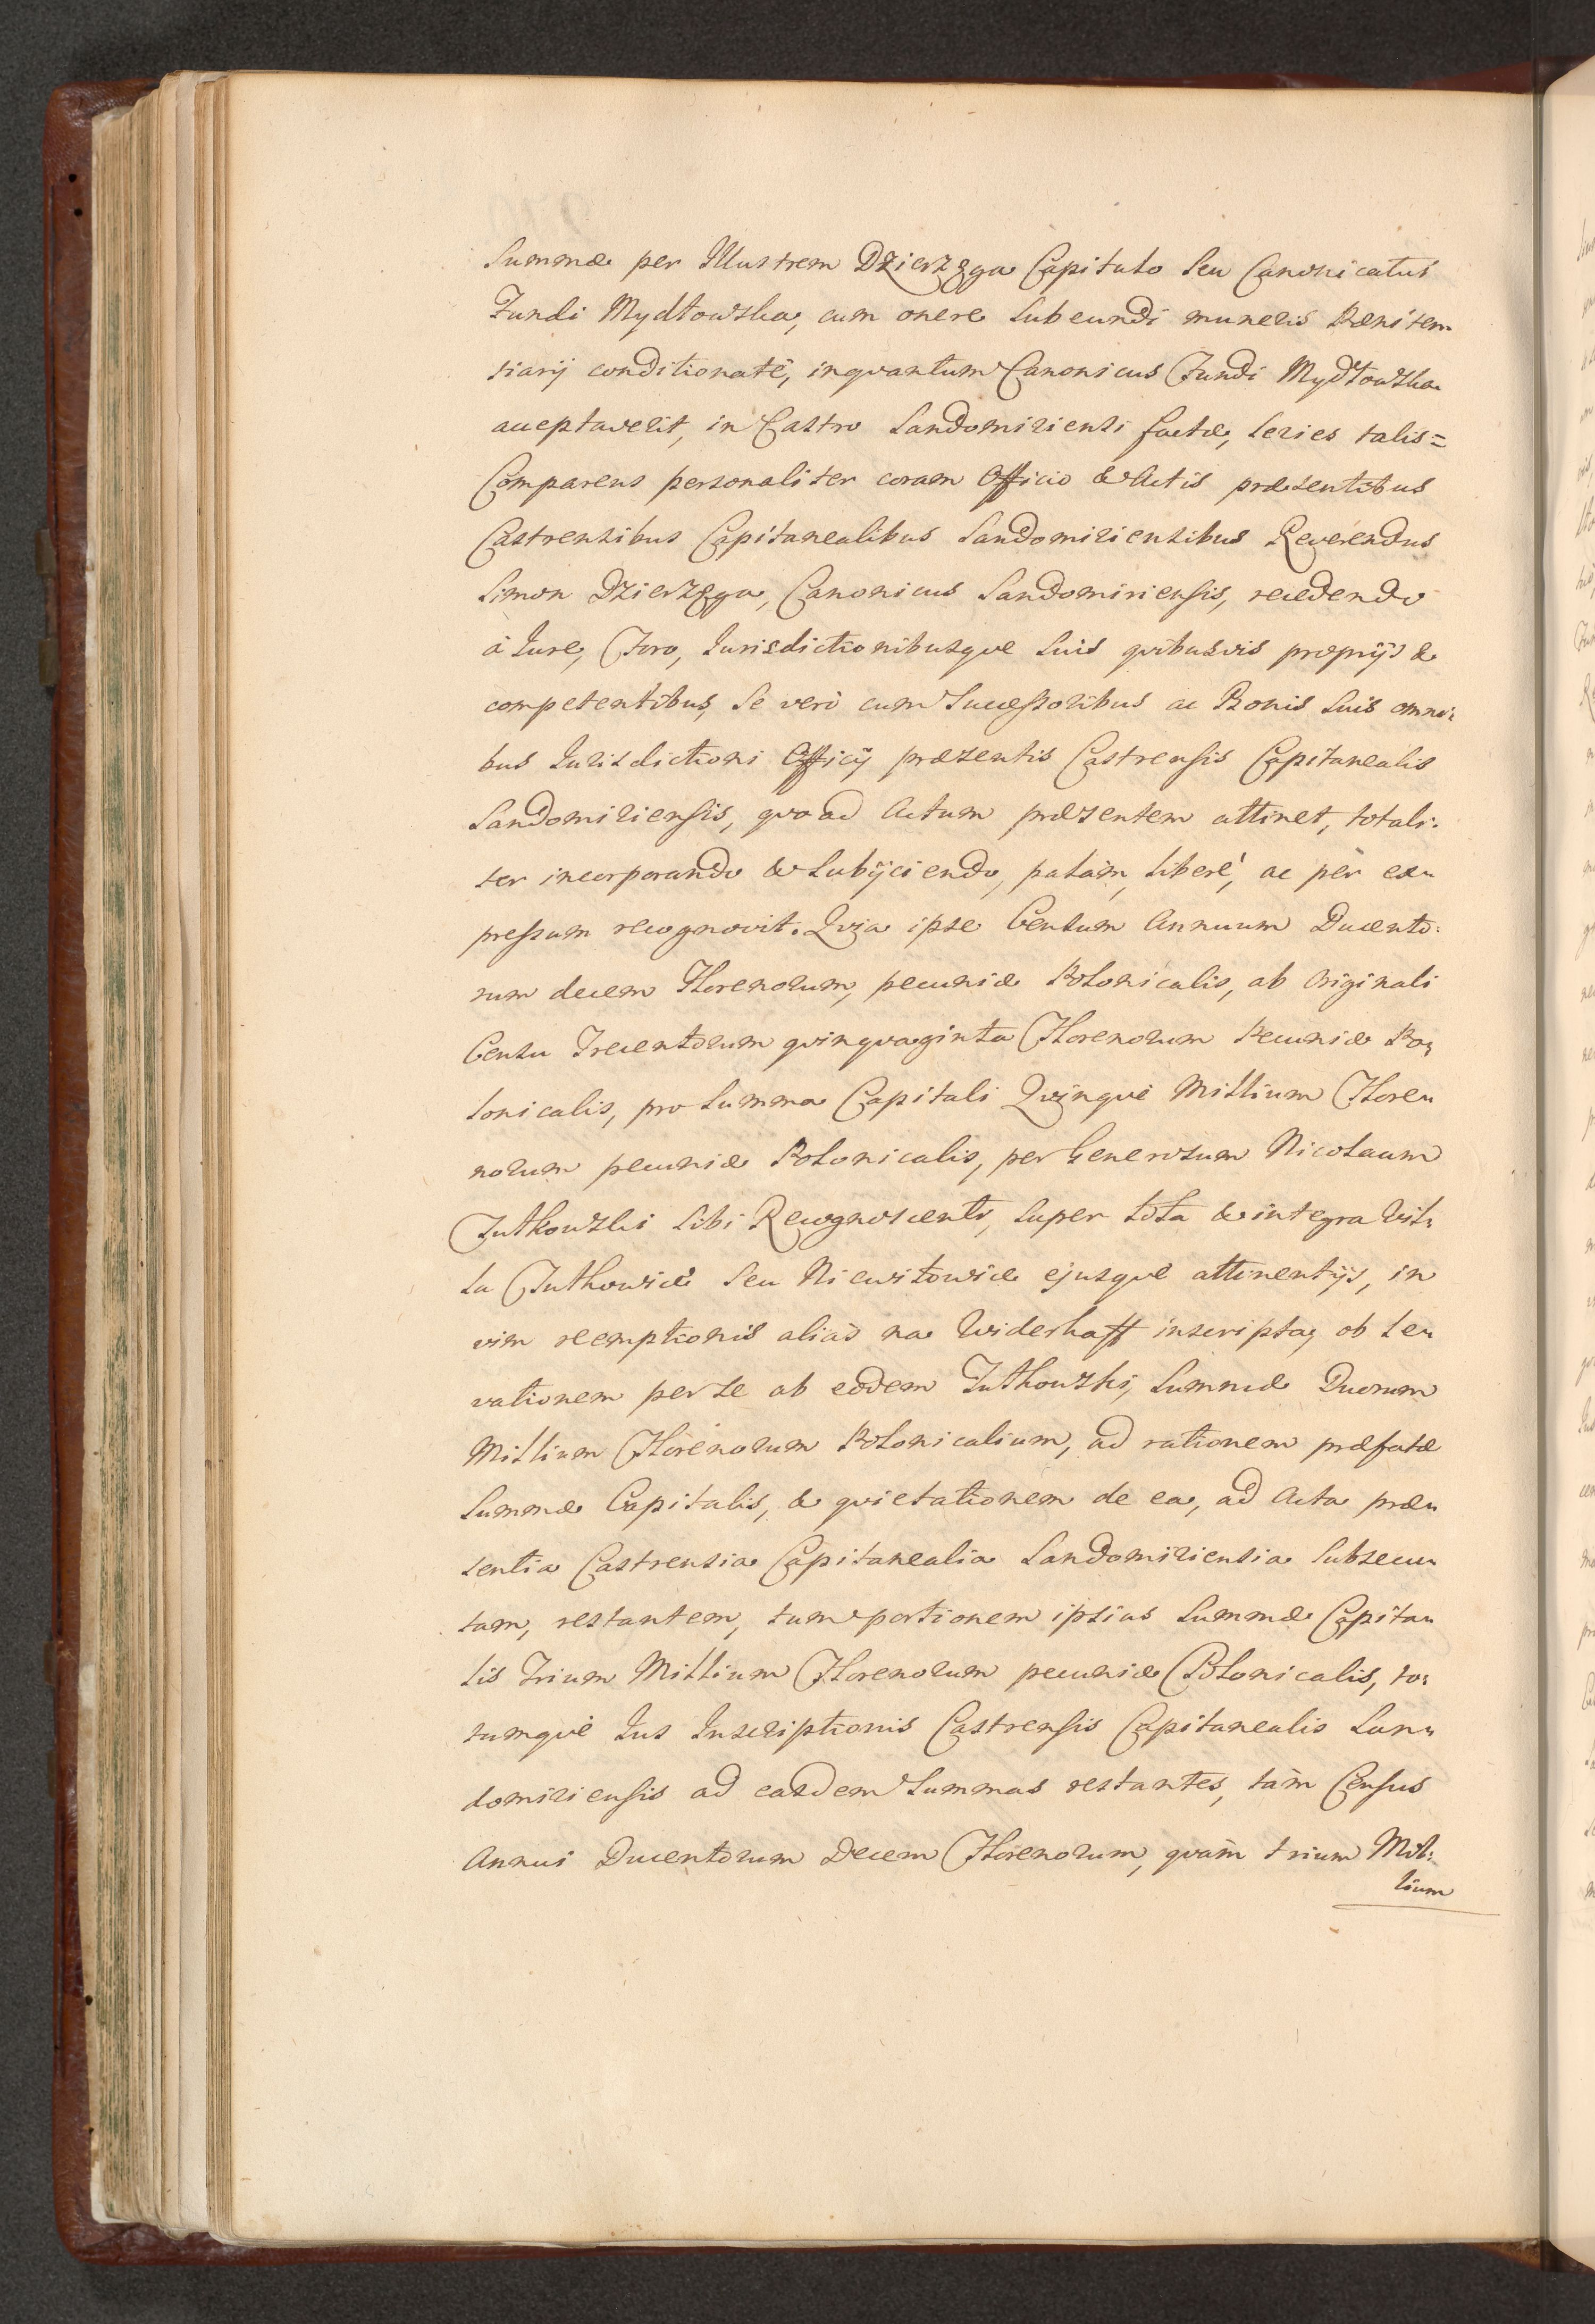 Summæ per Illustrem Dzierzgga Capitulo Seu Canonicatus
Fundi Mydłowska, cum onere Subeundi muneris Pæniten-
tiarij conditionatè, inqvantum Canonicus Fundi Mydłowska
acceptaverit, in Castro Sandomiriensi factæ, Series talis =
Comparens personaliter coram Officio & Actis præsentibus
Castrensibus Capitanealibus Sandomiriensibus Reverendus
Simon Dzierzgga, Canonicus Sandomiriensis, recedendo
à Jure, Foro, Jurisdictionibusqve Suis qvibusvis proprijs &
competentibus, Se verò cum Successoribus ac Bonis Suis omni-
bus Jurisdictioni Officij præsentis Castrensis Capitanealis
Sandomiriensis, qvoad Actum præsentem attinet, totali-
ter incorporando & Subijciendo, palàm, liberè, ac per ex-
pressum recognovit. Qvia ipse Censum Annuum Ducento-
rum decem Florenorum, pecuniæ Polonicalis, ab Originali
Censu Trecentorum qvinqvaginta Florenorum Pecuniæ Po-
lonicalis, pro Summa Capitali Qvinqve Millium Flore-
norum pecuniæ Polonicalis, per Generosum Nicolaum
Jutkowski Sibi Recognoscenti, Super tota & integra Vil-
la Juthowice Seu Niewitowice ejusqve attinentijs, in
vim reemptionis aliàs na Widerkaff inscripta, ob le-
vationem per Se ab eodem Juthowski, Summæ Duorum
Millium Florenorum Polonicalium, ad rationem præfatæ
Summæ Capitalis, & qvietationem de ea, ad Acta præ-
sentia Castrensia Capitanealia Sandomiriensia Subsecu-
tam, restantem, tum portionem ipsius Summæ Capita-
lis Trium Millium Florenorum pecuniæ Polonicalis, to-
tumqve Jus Inscriptionis Castrensis Capitanealis San-
domiriensis ad easdem Summas restantes, tàm Census
Annui Ducentorum Decem Florenorum, qvàm trium Mil-
lium